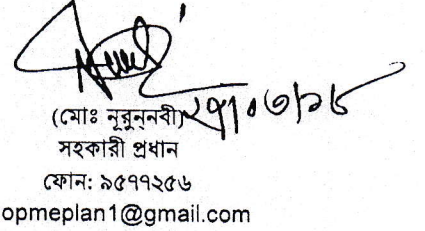 (মোঃ নূরুন্‌নবী)
সহকারী প্রধান
ফোন: ৯৫৭৭২৫৬
opmeplan1@gmail.com